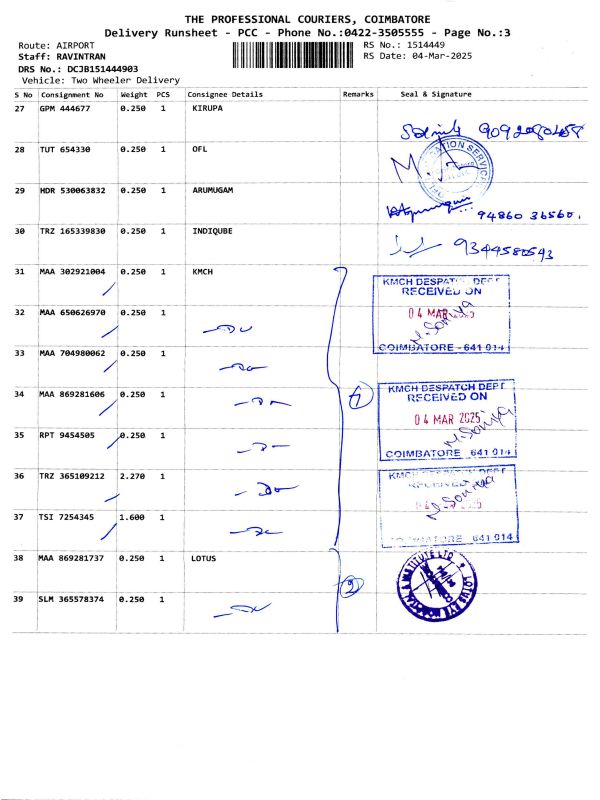 THE PROFESSIONAL COURIERS, COIMBATORE
Delivery Runsheet - PCC - Phone No.:0422-3505555 - Page No.:3
Route: AIRPORT
RS No.: 1514449
Staff: RAVINTRAN
RS Date: 04-Mar-2025
DRS No.: DCJB151444903
Vehicle: Two Wheeler Delivery
S No Consignment No Weight PCS Consignee Details Remarks Seal & Signature
27 GPM 444677 0.250 1 KIRUPA
28 TUT 654330 0.250 1 OFL
29 HDR 530063832 0.250 1 ARUMUGAM
94860 36560.
30 TRZ 165339830 0.250 1 INDIQUBE
9344580543
31 MAA 302921004 0.250 1 KMCH
KMCH DESPATCH DEPT
RECEIVED ON
04 MAR 2025
COIMBATORE - 641 014
32 MAA 650626970 0.250 1
33 MAA 704980062 0.250 1
34 MAA 869281606 0.250 1
7
KMCH DESPATCH DEPT
RECEIVED ON
04 MAR 2025
COIMBATORE 641 014
35 RPT 9454505 0.250 1
36 TRZ 365109212 2.270 1
KMCH DESPATCH DEPT
RECEIVED ON
COIMBATORE 641 014
37 TSI 7254345 1.600 1
38 MAA 869281737 0.250 1 LOTUS
2
LOTUS EYE HOSPITAL & INSTITUTE LTD
39 SLM 365578374 0.250 1